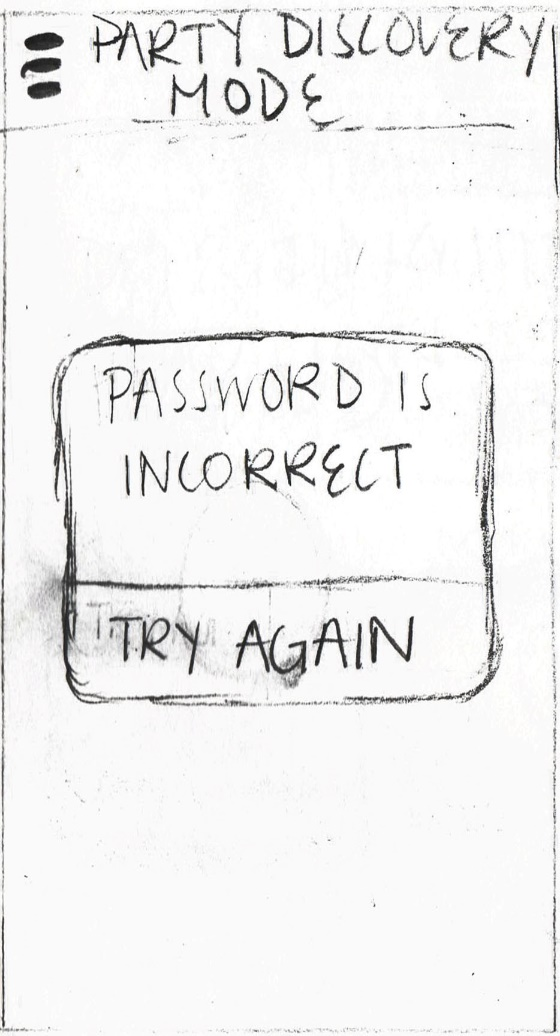 PARTY DISCOVERY
MODE
PASSWORD IS
INCORRECT
TRY AGAIN